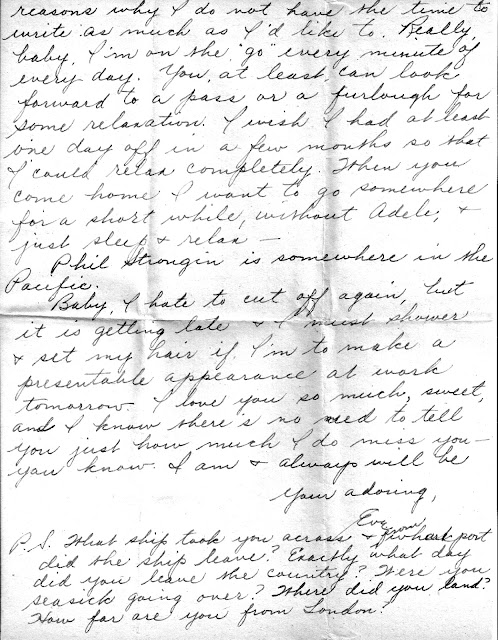 reasons why I do not have the time to
write as much as I'd like to. Really,
baby, I'm on the "go" every minute of
every day. You, at least, can look
forward to a pass or a furlough for
some relaxation. I wish I had at least
one day off in a few months so that
I could relax completely. When you
come home I want to go somewhere
for a short while, without Adele, &
just sleep & relax —
Phil Strongin is somewhere in the
Pacific.
Baby, I hate to cut off again, but
it is getting late & I must shower
& set my hair if I'm to make a
presentable appearance at work
tomorrow. I love you so much, sweet,
and I know there's no need to tell
you just how much I do miss you—
you know. I am & always will be
Your adoring,
Eve
P.S. What ship took you across & from what port
did the ship leave? Exactly what day
did you leave the country? Were you
seasick going over? Where did you land?
How far are you from London?